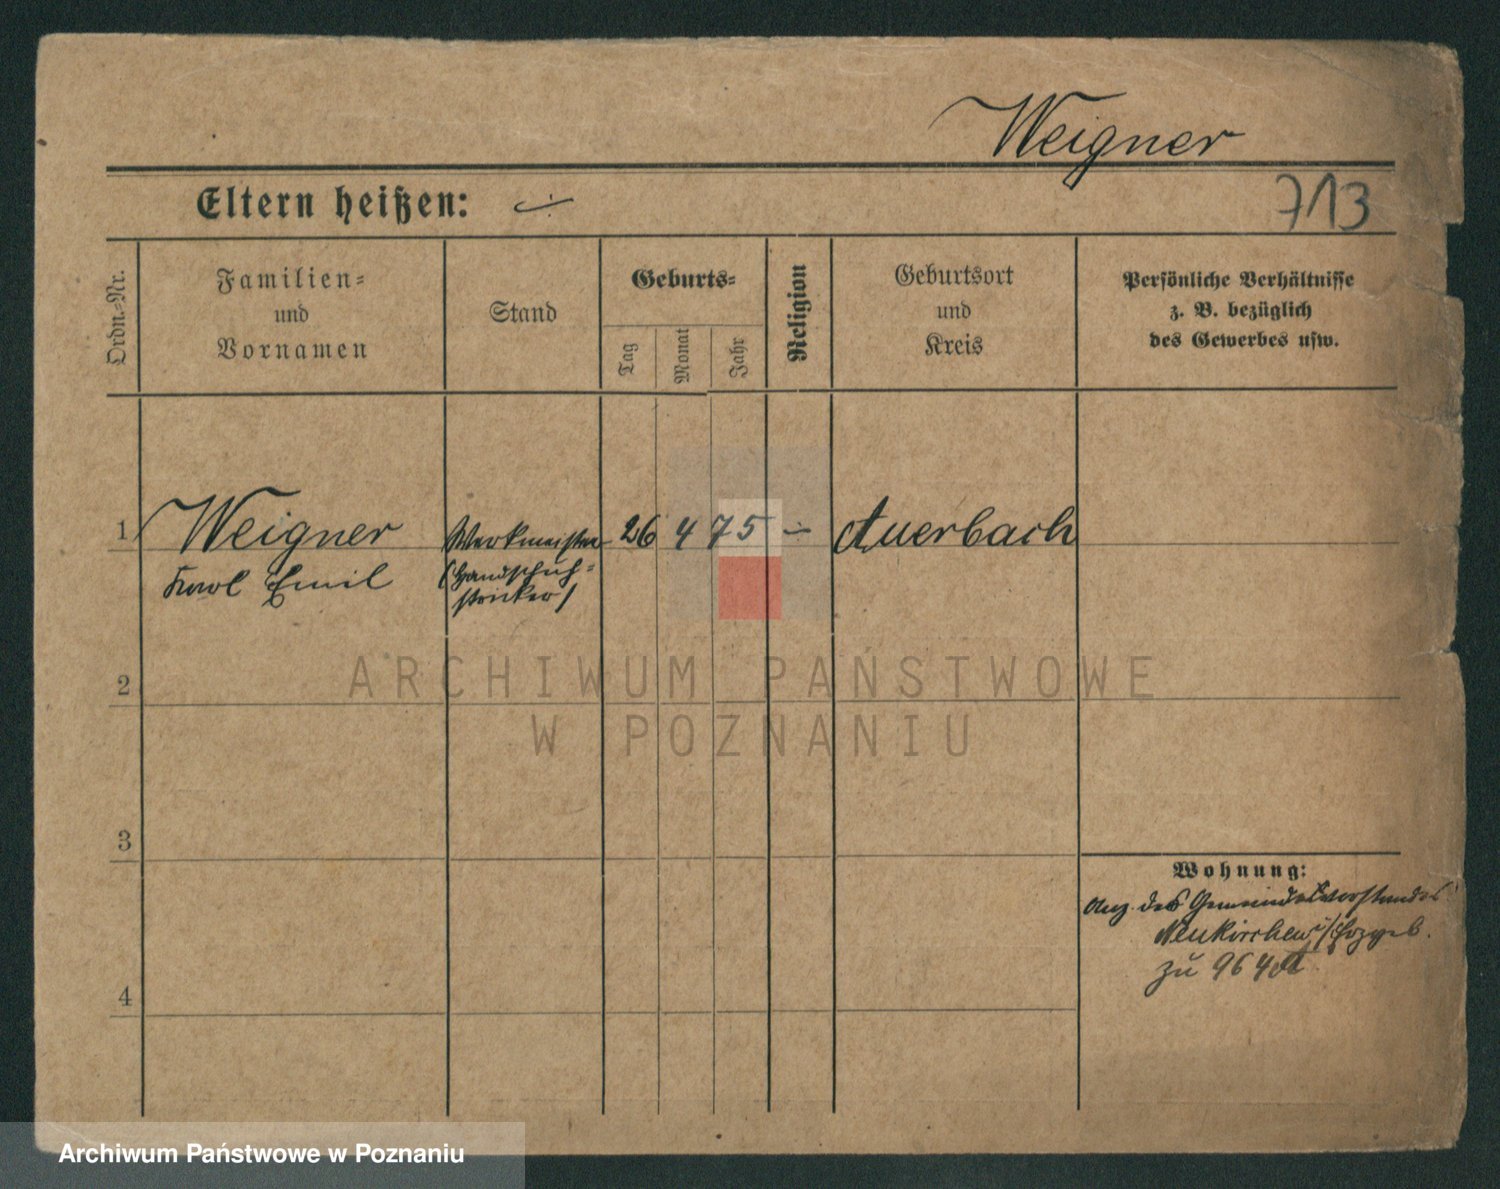 Weigner
Eltern heißen: ÷
713
Ordn.-Nr.
Familien-
und
Vornamen
Stand
Geburts-
Tag
Monat
Jahr
Religion
Geburtsort
und
Kreis
Persönliche Verhältnisse
z. B. bezüglich
des Gewerbes usw.
1 Weigner Werkmeister 26 4 75 ÷ Auerbach
Karl Emil (Handschuh-
stricker)
2
ARCHIWUM PAŃSTWOWE
W POZNANIU
3
Wohnung:
Anz. des Gemeindevorstandes
Neukirchen i/Erzgeb.
zu 964
4
Archiwum Państwowe w Poznaniu